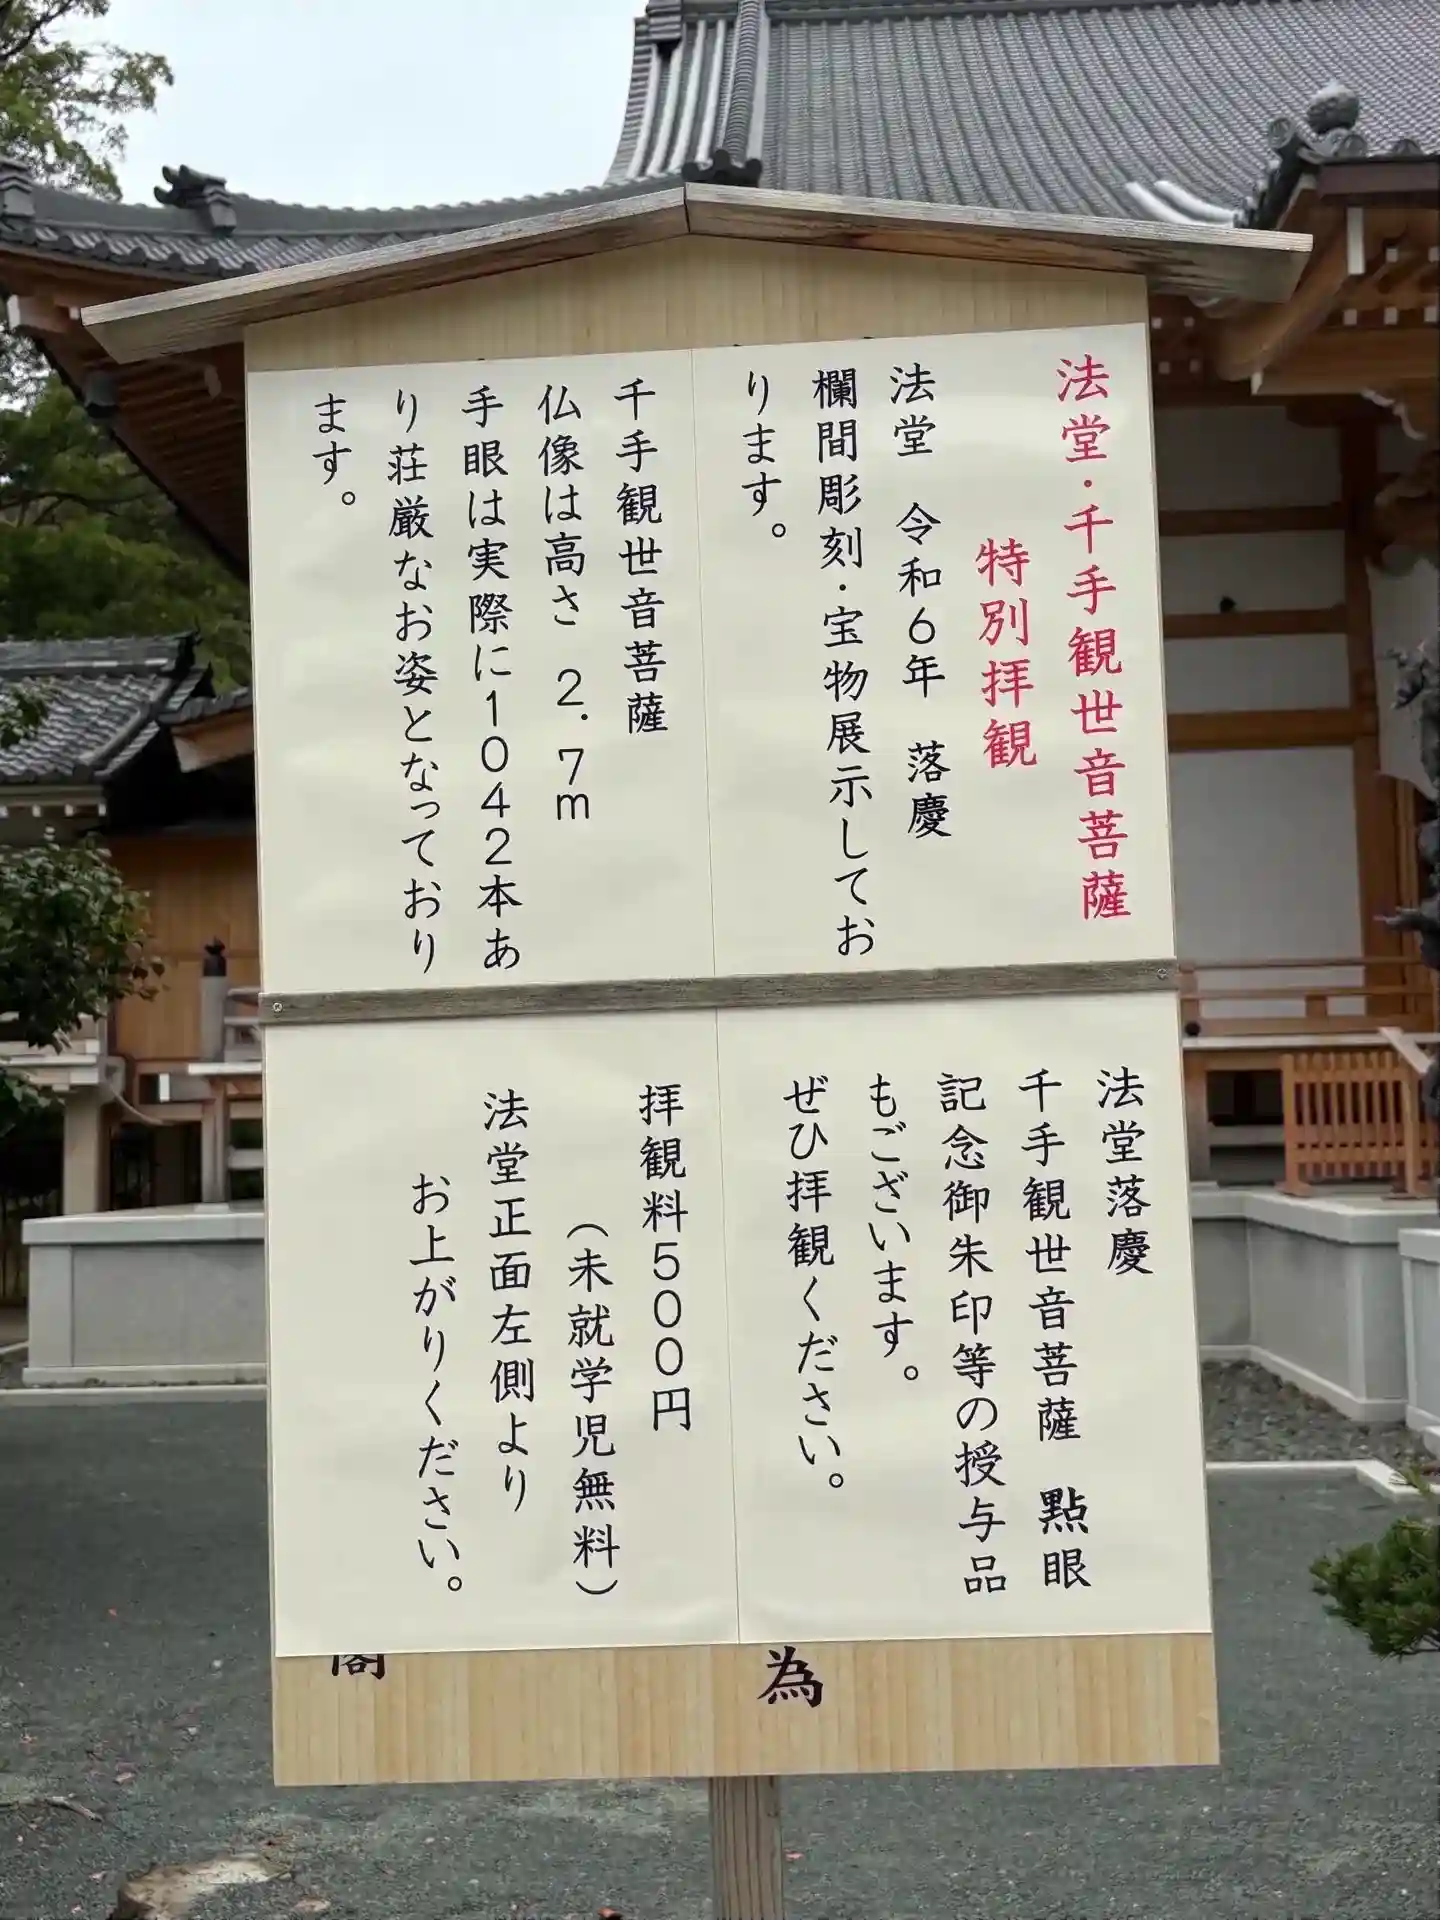 法堂・千手観世音菩薩
特別拝観
法堂　令和６年　落慶
欄間彫刻・宝物展示してお
ります。
千手観世音菩薩
仏像は高さ　２．７ｍ
手眼は実際に１０４２本あ
り荘厳なお姿となっており
ます。
法堂落慶
千手観世音菩薩　點眼
記念御朱印等の授与品
もございます。
ぜひ拝観ください。
拝観料５００円
（未就学児無料）
法堂正面左側より
お上がりください。
為